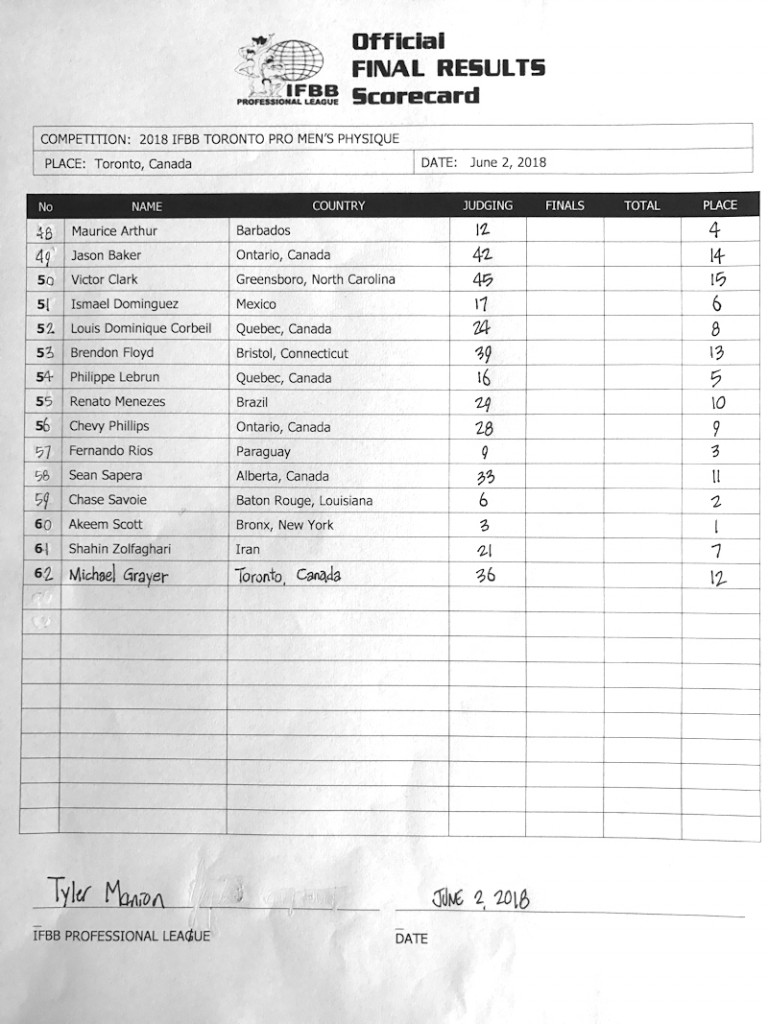 Official
FINAL RESULTS
Scorecard
IFBB
PROFESSIONAL LEAGUE
COMPETITION: 2018 IFBB TORONTO PRO MEN'S PHYSIQUE
PLACE: Toronto, Canada DATE: June 2, 2018
No NAME COUNTRY JUDGING FINALS TOTAL PLACE
48 Maurice Arthur Barbados 12 4
49 Jason Baker Ontario, Canada 42 14
50 Victor Clark Greensboro, North Carolina 45 15
51 Ismael Dominguez Mexico 17 6
52 Louis Dominique Corbeil Quebec, Canada 24 8
53 Brendon Floyd Bristol, Connecticut 39 13
54 Philippe Lebrun Quebec, Canada 16 5
55 Renato Menezes Brazil 29 10
56 Chevy Phillips Ontario, Canada 28 9
57 Fernando Rios Paraguay 9 3
58 Sean Sapera Alberta, Canada 33 11
59 Chase Savoie Baton Rouge, Louisiana 6 2
60 Akeem Scott Bronx, New York 3 1
61 Shahin Zolfaghari Iran 21 7
62 Michael Grayer Toronto, Canada 36 12
Tyler Manion JUNE 2, 2018
IFBB PROFESSIONAL LEAGUE DATE